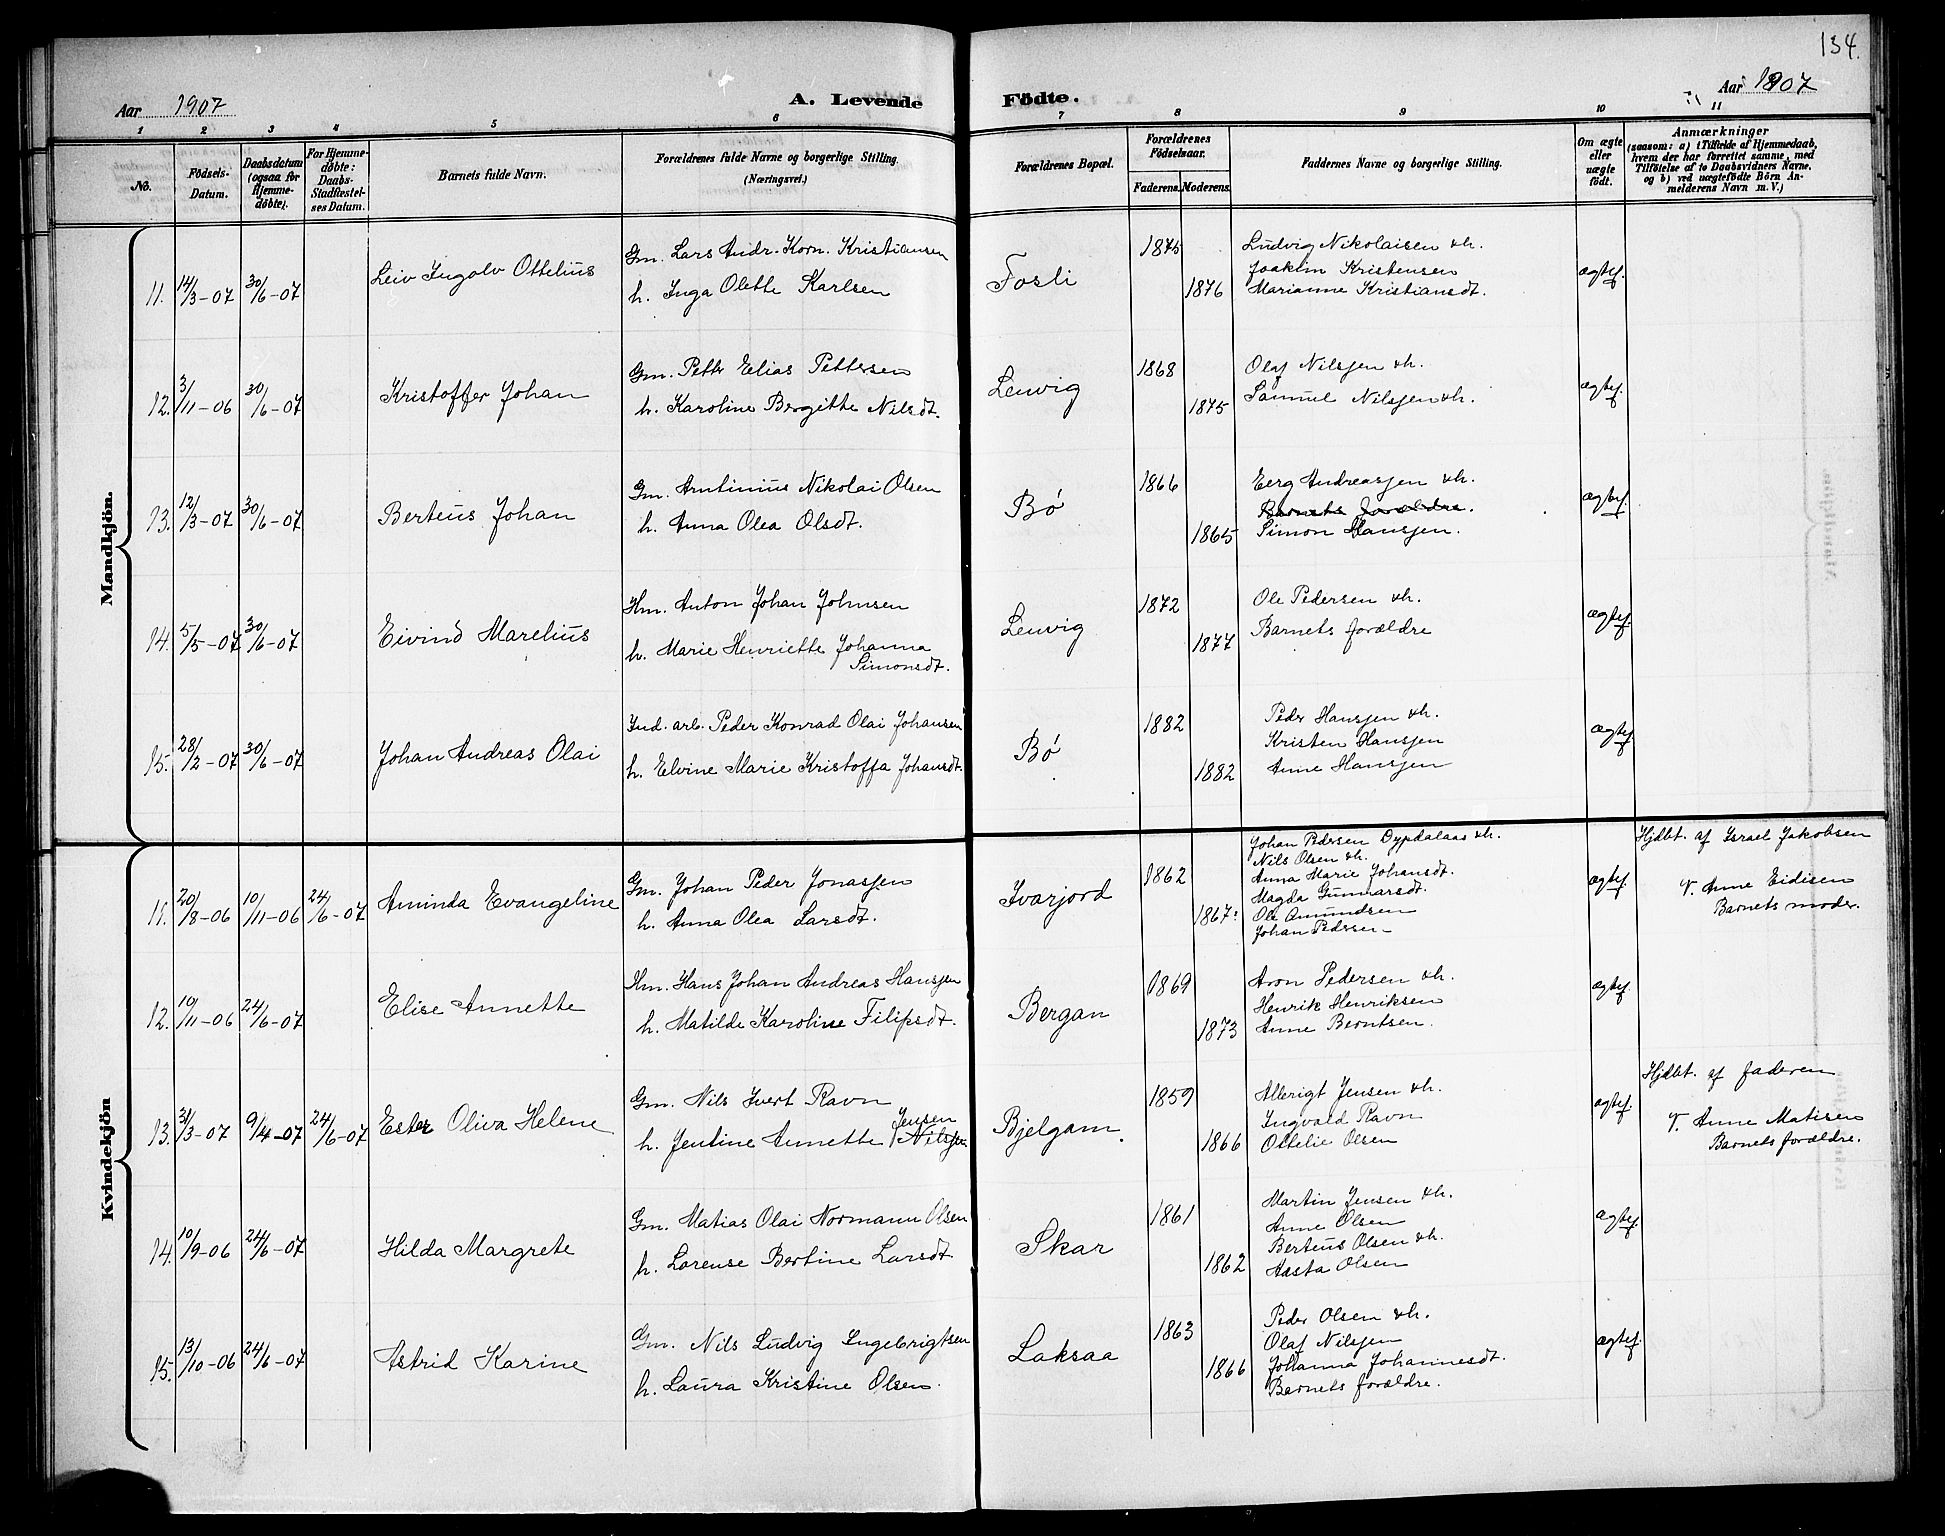 134.
Aar 1907
A. Levende Födte.
Aar 1907
1 2 3 4 5 6 7 8 9 10 11
No.
Födsels-
Datum.
Daabsdatum
(ogsaa for
Hjemme-
döbte).
For Hjemme-
döbte:
Daabs-
Stadfæstel-
ses Datum.
Barnets fulde Navn.
Forældrenes fulde Navne og borgerlige Stilling.
(Næringsvei.)
Forældrenes Bopæl.
Forældrenes
Födselsaar.
Faderens. Moderens.
Faddernes Navne og borgerlige Stilling.
Om ægte
eller
uægte
födt.
Anmærkninger
(saasom: a) i Tilfælde af Hjemmedaab,
hvem der har forrettet samme, med
Tilföielse af to Daabsvidners Navne,
og b) ved uægtefödte Börn An-
melderens Navn m. V.)
Mandkjön.
11. 14/3-07 30/6-07 Leiv Ingolv Ottelius
Gm. Lars Andr. Korn. Kristiansen
h. Inga Olette Karlsen
Fosli
1875
1876
Ludvig Nikolaisen &h.
Joakim Kristensen
Marianne Kristiansdt.
ægtef.
12. 3/11-06 30/6-07 Kristoffer Johan
Gm. Petter Elias Pettersen
h. Karoline Bergitte Nilsdt.
Lenvig
1868
1875
Olaf Nilsjen &h.
Samuel Nilsjen &h.
ægtef.
13. 12/3-07 30/6-07 Berteus Johan
Gm. Arntinius Nikolai Olsen
h. Anna Olea Olsdt.
Bø
1866
1865
Eerg Andreasjen &h.
Barnets forældre.
Simon Hansjen.
ægtef.
14. 5/5-07 30/6-07 Eivind Marelius
Hm. Anton Johan Johnsen
h. Marie Henriette Johanna
Simonsdt.
Lenvig
1872
1877
Ole Pedersen &h.
Barnets forældre
ægtef.
15. 28/2-07 30/6-07 Johan Andreas Olai
Ind. arb. Peder Konrad Olai Johansen
h. Elvine Marie Kristoffa Johansdt.
Bø
1882
1882
Peder Hansjen &h.
Kristen Hansjen
Anne Hansjen
ægtef.
Kvindekjön
11. 20/8-06 10/11-06 24/6-07 Aminda Evangeline
Gm. Johan Peder Jonasjen
h. Anna Olea Larsdt.
Ivarjord
1862
1867
Johan Pedersen Dypdalaas &h.
Nils Olsen &h.
Anna Marie Johansdt.
Magda Gunnarsdt.
Ole Amundsen
Johan Pedersen
ægtef.
Hjdbt. af Israel Jakobsen
V. Anne Eidisen
Barnets moder.
12. 10/11-06 24/6-07 Elise Annette
Hm. Hans Johan Andreas Hansjen
h. Matilde Karoline Filipsdt.
Bergan
1869
1873
Aron Pedersen &h.
Henrik Henriksen
Anne Berntsen.
ægtef.
13. 31/3-07 9/4-07 24/6-07 Ester Oliva Helene
Gm. Nils Ivert Ravn
Jensen
h. Jentine Annette Nilsjen
Bjelgam.
1859
1866
Allerigt Jensen &h.
Ingvald Ravn
Ottelie Olsen
ægtef.
Hjdbt. af faderen
V. Anne Matisen
Barnets forældre.
14. 10/9-06 24/6-07 Hilda Margrete
Gm. Matias Olai Normann Olsen
h. Lorense Bertine Larsdt.
Skar
1861
1862
Martin Jensen &h.
Anne Olsen
Berteus Olsen &h.
Aasta Olsen
ægtef.
15. 13/10-06 24/6-07 Astrid Karine
Gm. Nils Ludvig Ingebrigtsen
h. Laura Kristine Olsen.
Laksaa
1863
1866
Peder Olsen &h.
Olaf Nilsjen
Johanna Johannesdt.
Barnets forældre.
ægtef.